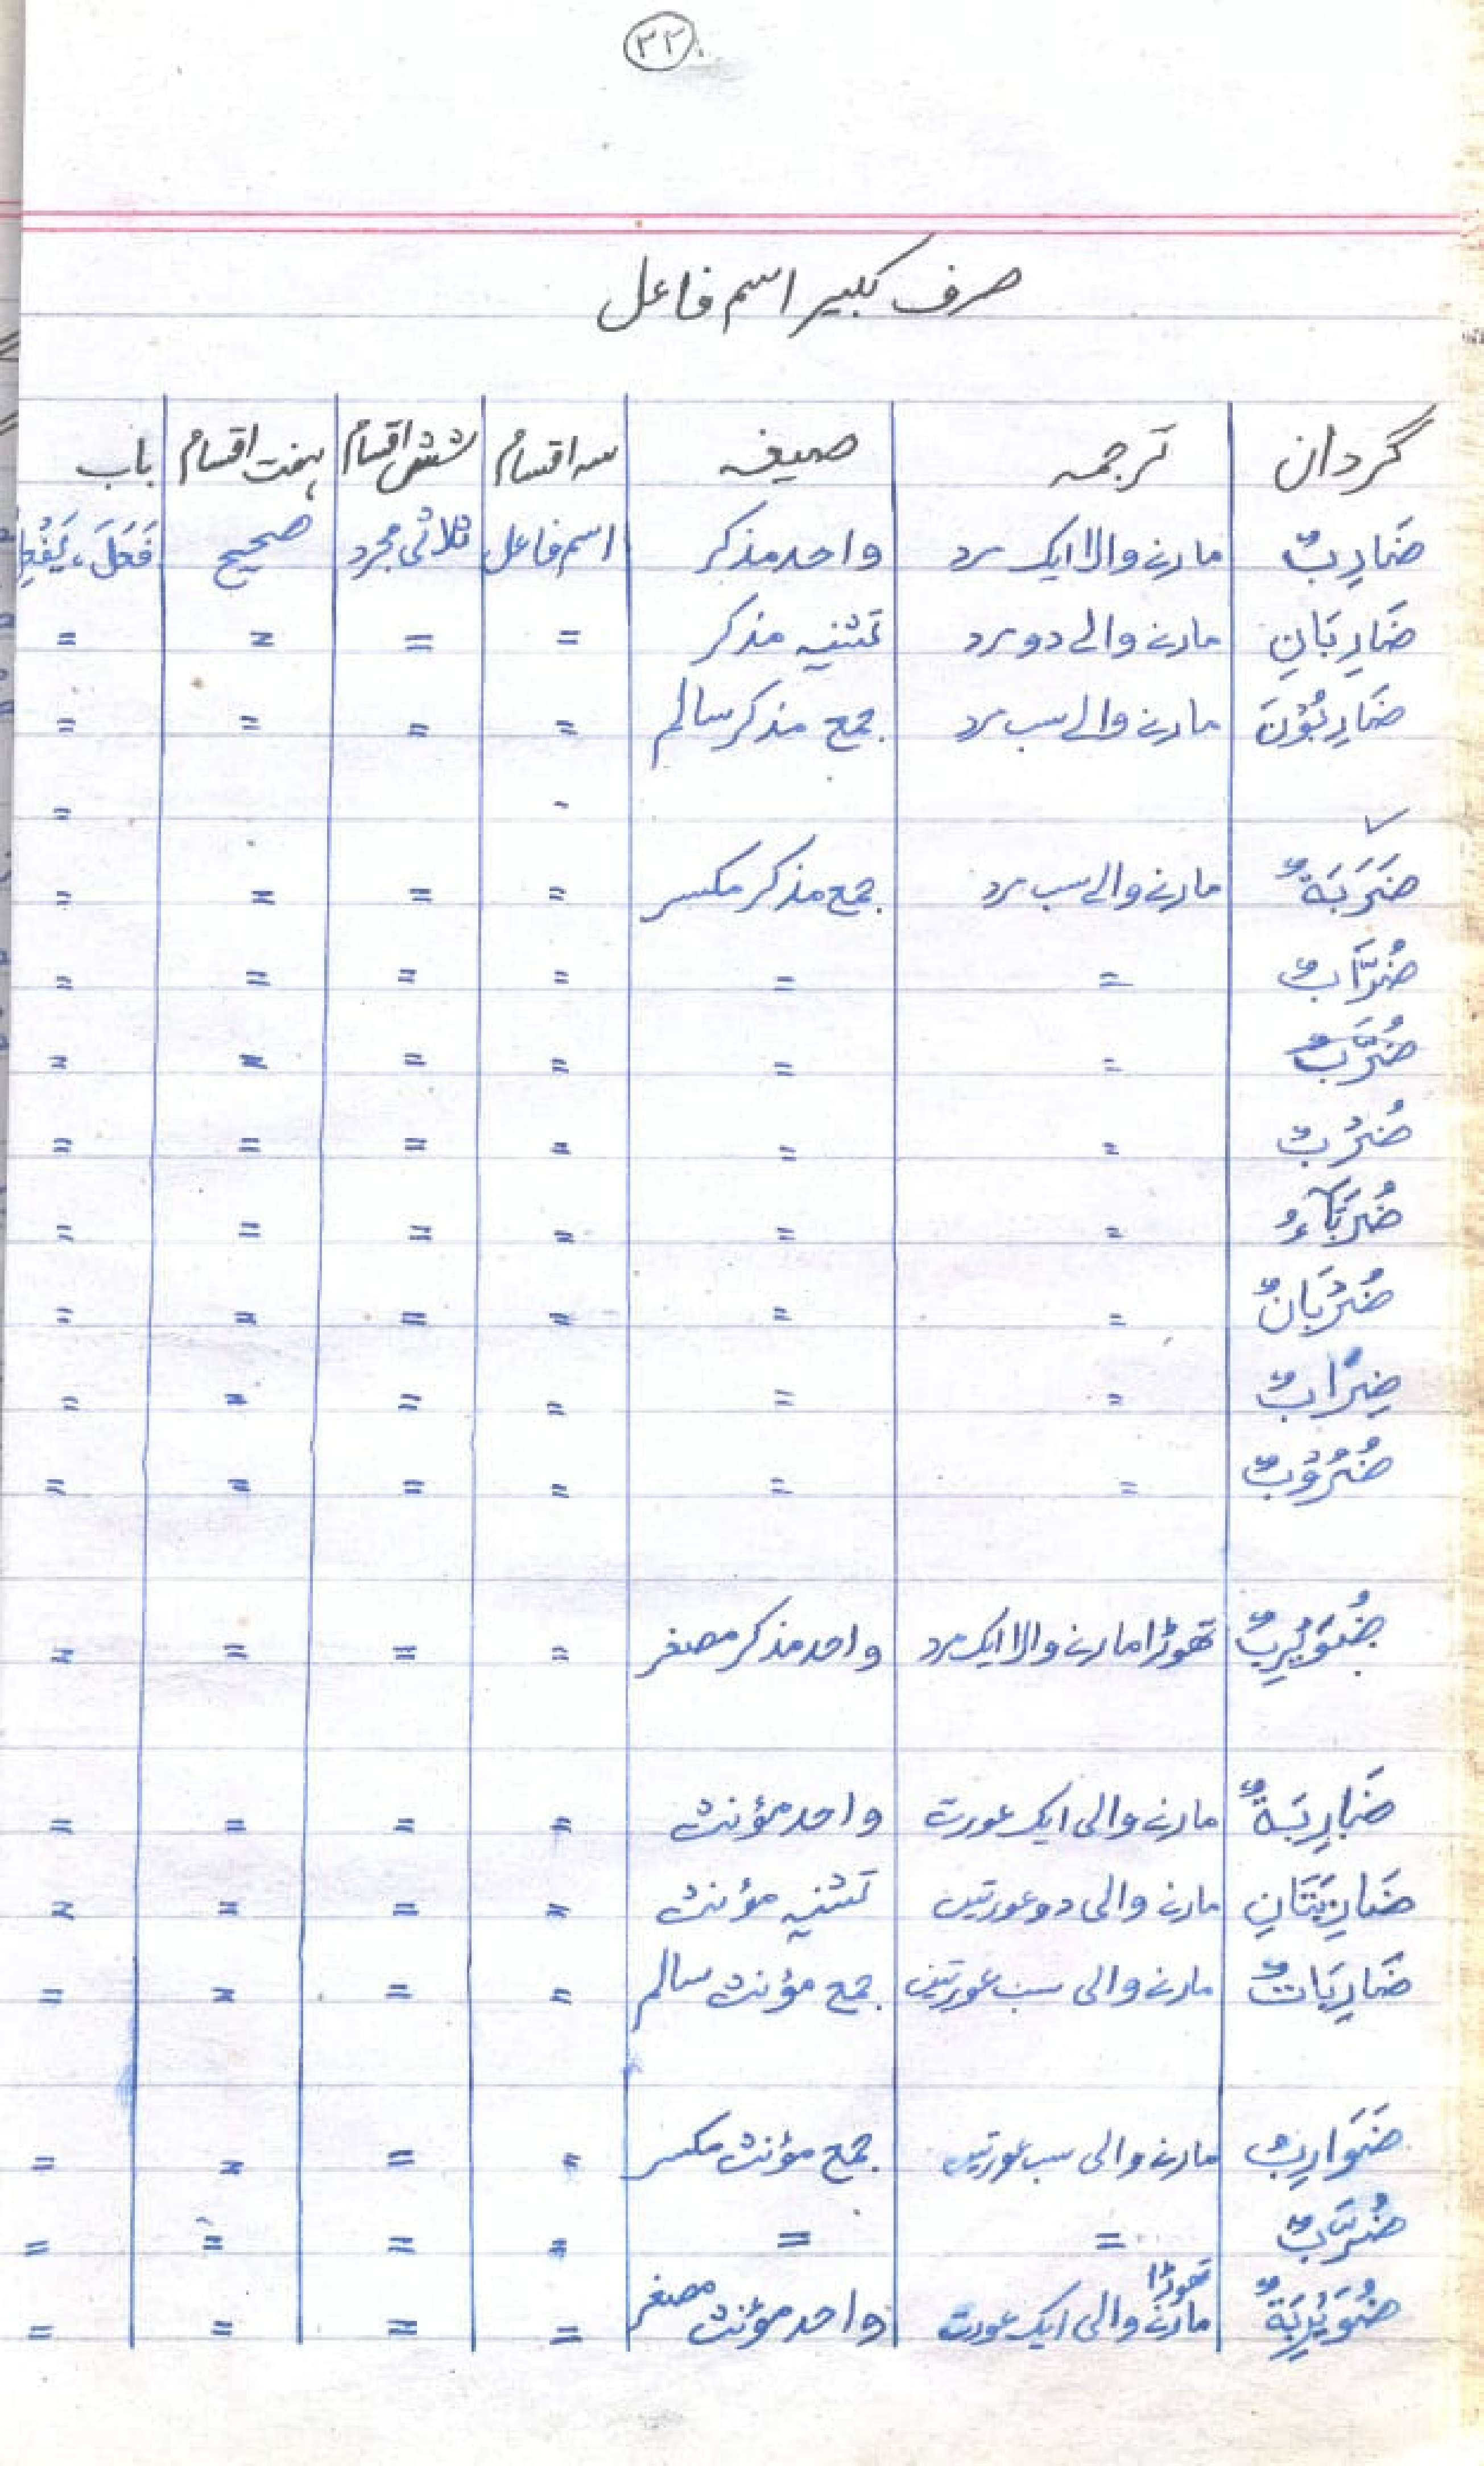 ۲۲
صرف کبیر اسم فاعل
گردان ترجمہ صیغہ سہ اقسام شش اقسام ہفت اقسام باب
ضَارِبٌ مارنے والا ایک مرد واحد مذکر اسم فاعل ثلاثی مجرد صحیح فَعَلَ، یَفْعِلُ
ضَارِبَانِ مارنے والے دو مرد تثنیہ مذکر = = = =
ضَارِبُوْنَ مارنے والے سب مرد جمع مذکر سالم = = = =
= =
ضَرَبَةٌ مارنے والے سب مرد جمع مذکر مکسر = = = =
ضُرَّابٌ = = = = = =
ضُرَّبٌ = = = = = =
ضُرْبٌ = = = = = =
ضُرَبَاءُ = = = = = =
ضُرْبَانٌ = = = = = =
ضِرَابٌ = = = = = =
ضُرُوْبٌ = = = = = =
ضُوَيْرِبٌ تھوڑا مارنے والا ایک مرد واحد مذکر مصغر = = = =
ضَارِبَةٌ مارنے والی ایک عورت واحد مؤنث = = = =
ضَارِبَتَانِ مارنے والی دو عورتیں تثنیہ مؤنث = = = =
ضَارِبَاتٌ مارنے والی سب عورتیں جمع مؤنث سالم = = = =
ضَوَارِبُ مارنے والی سب عورتیں جمع مؤنث مکسر = = = =
ضُرَّبٌ = = = = = =
ضُوَيْرِبَةٌ تھوڑا مارنے والی ایک عورت واحد مؤنث مصغر = = = =